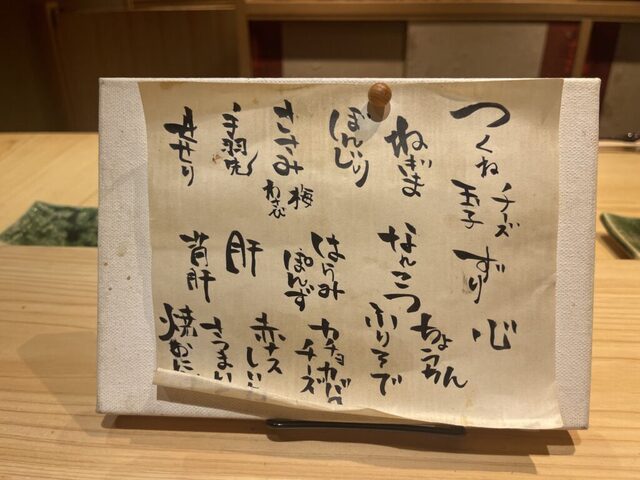 つくね
チーズ
玉子
ねぎま
ぼんじり
ささみ
梅
わさび
手羽先
せせり
ずり
心
なんこつ
はらみ
ぽんず
肝
背肝
ちょうちん
ふりそで
カチョカバ
チーズ
赤ナス
しい
さつまい
焼おに